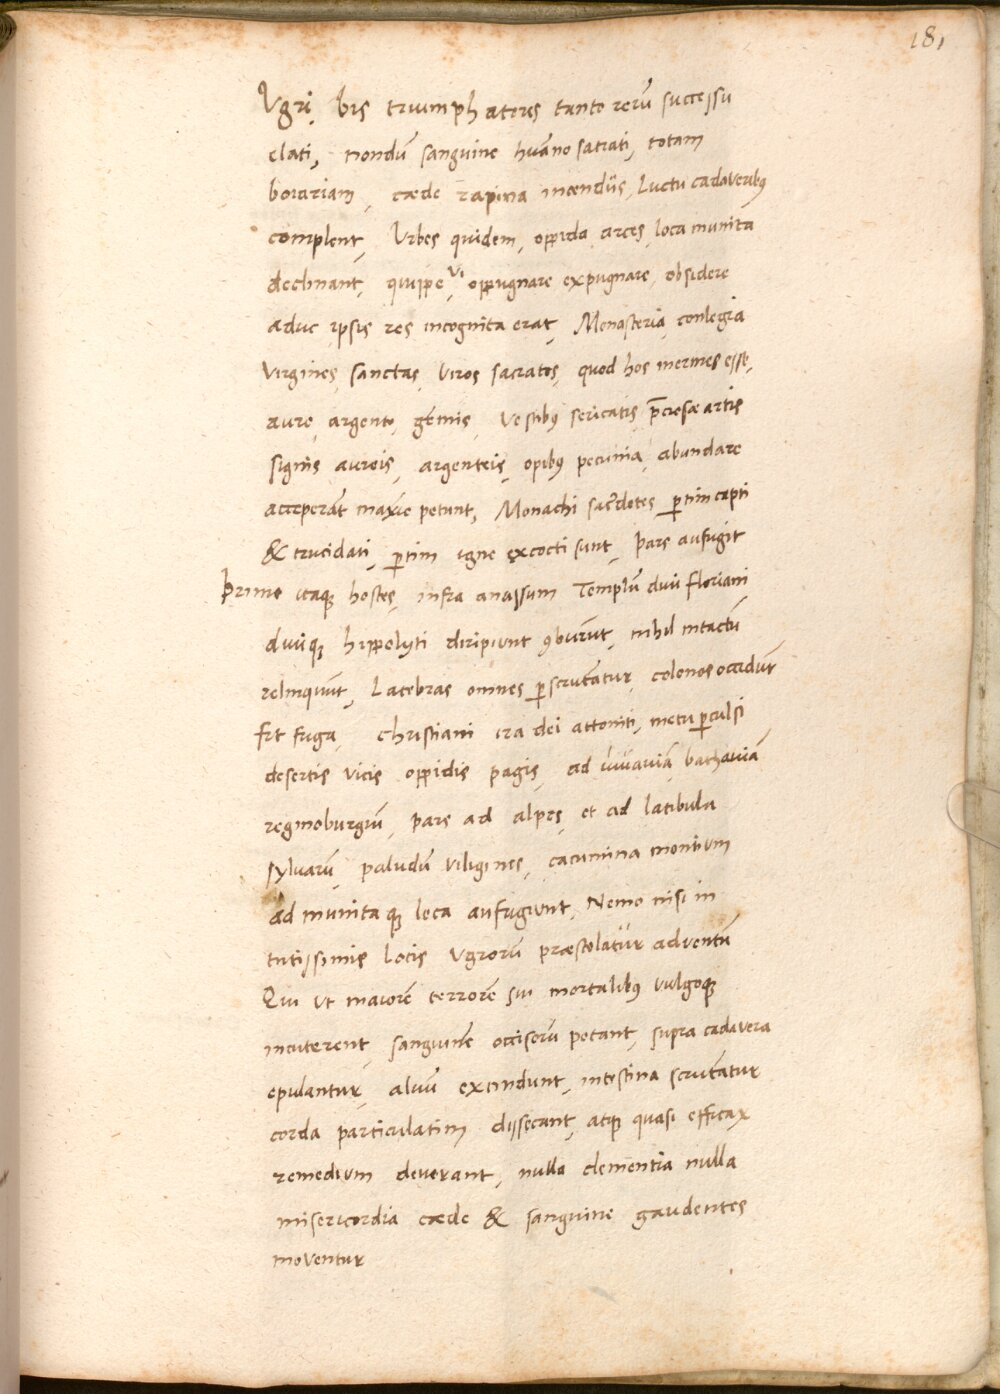 181
Vgri, bis triumphatores tanto rerū successu
elati, nondū sanguine hūano satiati, totam
boiariam, cæde rapina incendiis, Luctu cadaveribꝫ
complent, Vrbes quidem, oppida, arces, loca munita
declinant, quippe vi oppugnare expugnare, obsidere
aduc ipsis res incognita erat, Monasteria, conlegia
virgines, sanctas, viros sacratos, quod hos inermes esse,
auro, argento, gēmis, vestibꝫ sericatis p̄ciosæ artis
signis aureis, argenteis, opibꝫ pecunia, abundare
acceperāt maxīe petunt, Monachi sac̄dotes, ꝑtim capti
& trucidati, ꝑtim igne excocti sunt, pars aufugit
Primo itaqꝫ hostes, infra anassum Templū diui floriani
diuiqꝫ hippolyti diripiunt ꝯburūt, nihil intactū
relinquūt, Latebras omnes ꝑscrutātur, colonos occidūt
fit fuga, christiani ira dei attoniti, metu ꝑculsi,
desertis vicis oppidis pagis, ad iuuauiā, bathauiā,
reginoburgiū, pars ad alpes, et ad latibula
sylvarū, paludū viligines, cacumina montium
ad munitaqꝫ loca aufugiunt, Nemo nisi in
tutissimis locis Vgrorū præstolatur adventū
Qui vt maiorē terrorē sui mortalibꝫ vulgoqꝫ
incuterent, sanguinē occisorū potant, supra cadavera
epulantur, aluū excindunt, intestina scrutātur
corda particulatim dissecant, atqꝫ quasi efficax
remedium devorant, nulla clementia nulla
misericordia cæde & sanguine gaudentes
moventur